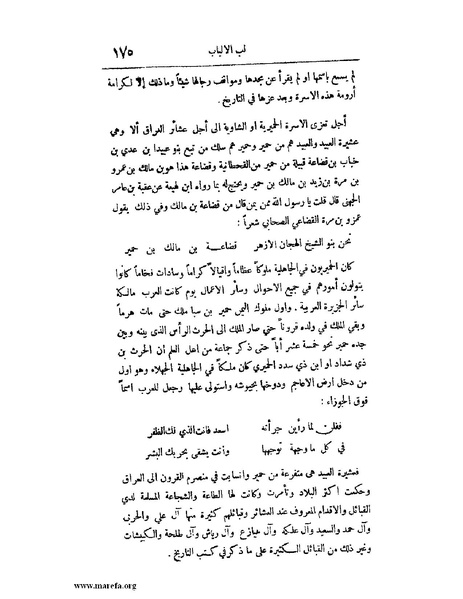 لب الالباب ١٧٥
لم يسمع باسمها او لم يقرأ عن مجدها ومواقف رجالها شيئاً وماذلك إلا لكرامة
أرومة هذه الاسرة وبعد عزها في التاريخ .
أجل تعزى الاسرة الحميرية او الشاوية الى أجل عشائر العراق ألا وهي
عشيرة العبيد والعبيد هم من حمير وحمير هم سلك من تبع بنو عبيدا بن عدي بن
خباب بن قضاعة قبيلة من حمير من القحطانية وقضاعة هذا هو بن مالك بن عمرو
بن مرة بن زيد بن مالك بن حمير ويحتج له بما رواه ابن لهيعة عن عقبة بن عامر
الجهني قال قلت يا رسول الله ممن يمن قال من قضاعة بن مالك وفي ذلك يقول
عمرو بن مرة القضاعي الصحابي شعراً :
نحن بنو الشيخ الهجان الازهر قضاعـة بن مالك بن حمير
كان الحميريون في الجاهلية ملوكاً عظاماً واقيالاً كراماً وسادات فخاماً كانوا
يتولون أمورهم في جميع الاحوال وسائر الاعمال يوم كانت العرب مالكة
سائر الجزيرة العربية . واول ملوك اليمن حمير بن سبا ملك حتى مات هرماً
وبقي الملك في ولده قروناً حتى صار الملك الى الحرث الرأس الذى بينه وبين
جده حمير نحو خمسة عشر أباً حتى ذكر جماعة من اهل العلم أن الحرث بن
ذي شداد او ابن ذي سدد الحميري كان ملكاً في الجاهلية الجهلاء وهو اول
من دخل ارض الاعاجم ودوخها بجيوشه واستولى عليها وجعل للعرب اسماً
فوق الجوزاء :
فقلن لما رأين جرأته اسعد فانت الذي فلك الظفر
في كل ما وجهة توجهها وأنت يشقى بحربك البشر
فعشيرة العبيد هي متفرعة من حمير وانسابت في منصرم القرون الى العراق
وحكمت اكثر البلاد وتأمرت وكانت لها الطاعة والشجاعة المسلمة لدي
القبائل والاقدام المعروف عند العشائر وقبائلهم كثيرة منها آل علي والحربي
وآل حمد والسعيد وآل علكه وآل هيازع وآل رياش وآل طلحة والكبيشات
وغير ذلك من القبائل الكثيرة على ما ذكر في كتب التاريخ .
www.marefa.org